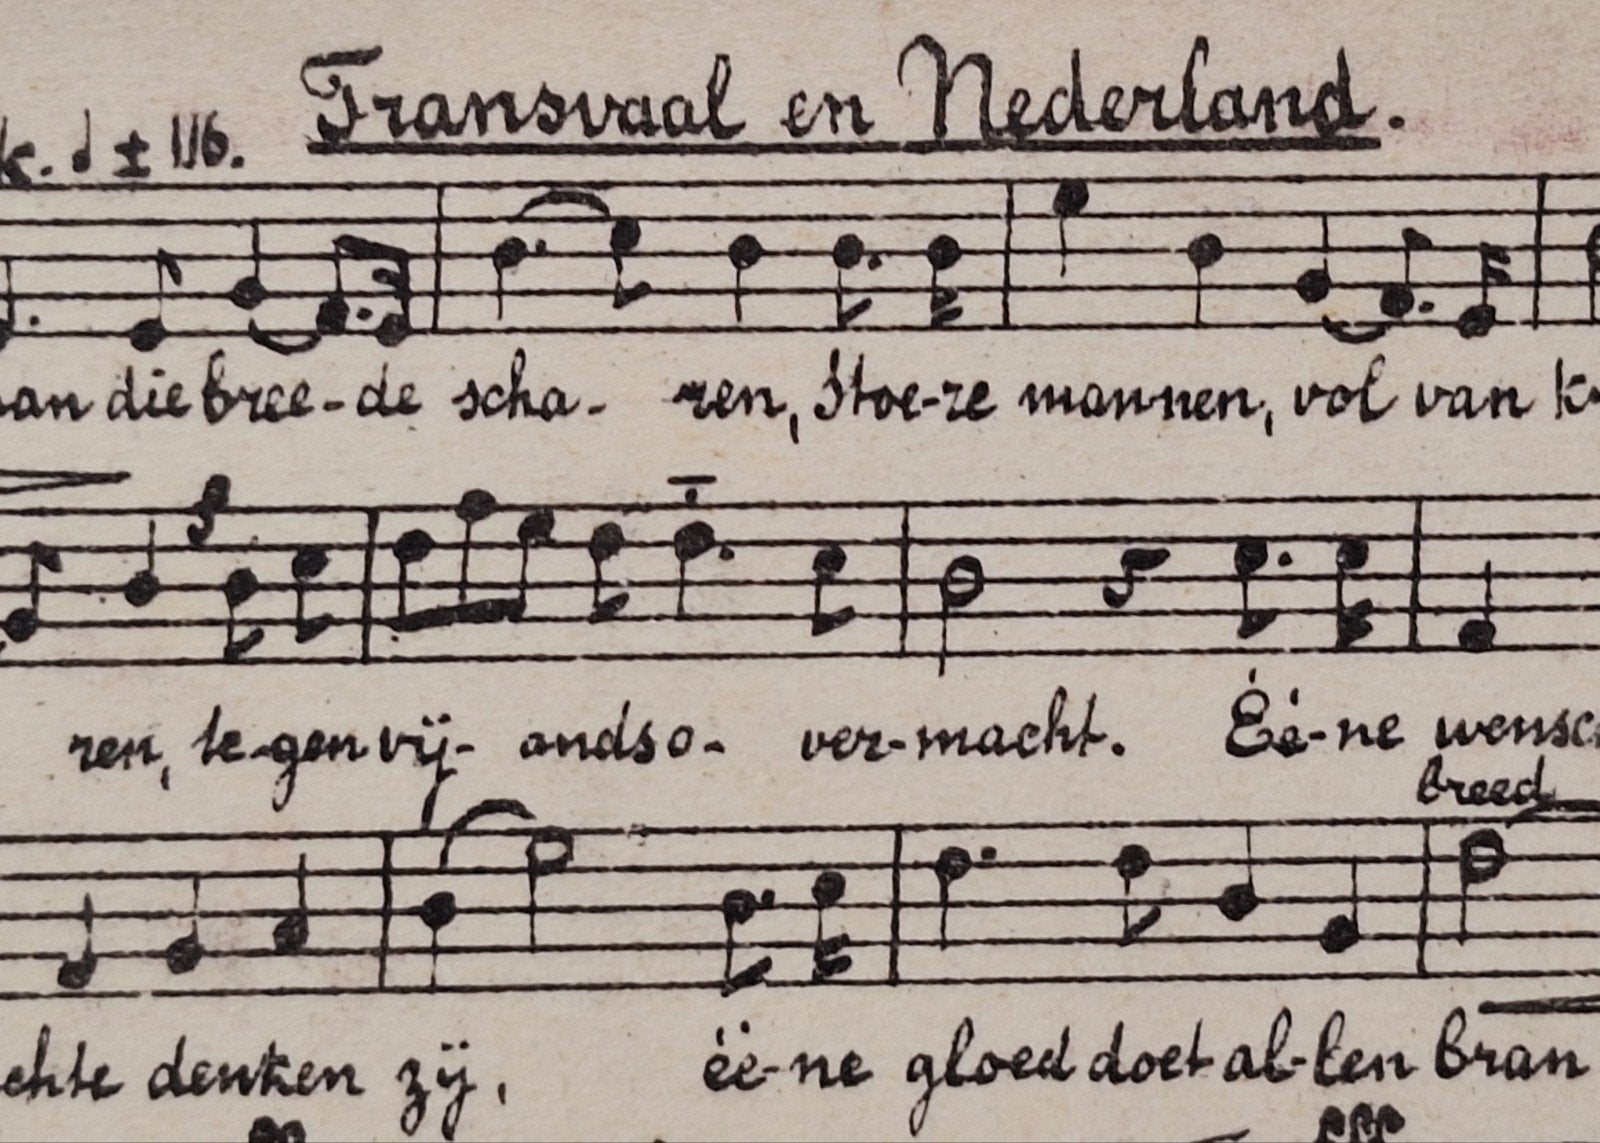 Transvaal en Nederland.
k. ♩ ± 116.
an die bree-de scha- ren, Stoe-re mannen, vol van k
ren, te-gen vij- ands o- ver-macht. Éé-ne wensc
breed
chte denken zij, éé-ne gloed doet al-len bran
ppp